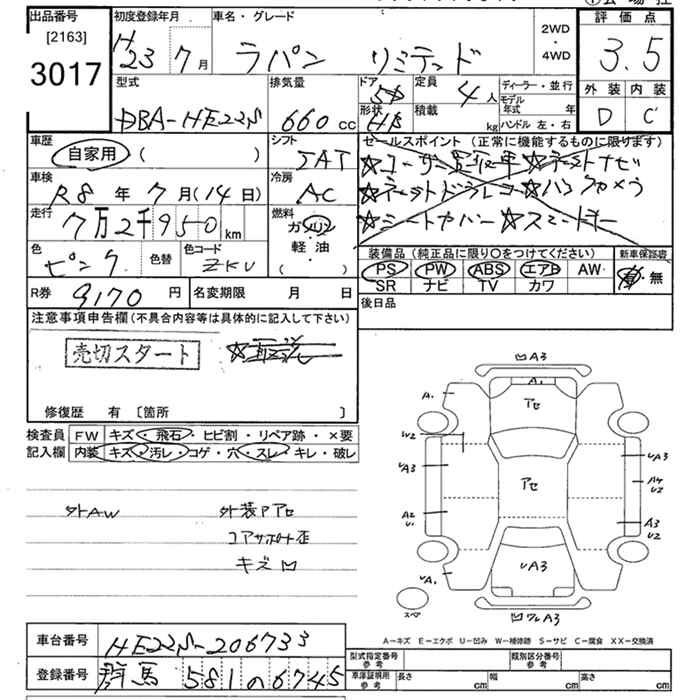 出品番号 初度登録年月 車名・グレード 2WD・4WD 評価点
[2163]
3017 H23 7月 ラパン リミテッド 3.5
型式 排気量 ドア 5D 定員 4人 ディーラー・並行 外装 内装
DBA-HE22S 660cc 形状 HB 積載 kg モデル年式 年 D C
ハンドル 左・右
車歴 自家用 ( ) シフト セールスポイント (正常に機能するものに限ります)
5AT
車検 R8年7月(14日) 冷房 AC
走行 7万2千950km 燃料 ガソリン
軽・油
( )
色 ピンク 色替 色コード ZKU 装備品 (純正品に限り〇をつけてください) 新車保証書
PS PW ABS エアB AW 有・無
SR ナビ TV カワ
R券 9170円 名変期限 月 日 後日品
注意事項申告欄(不具合内容等は具体的に記入して下さい)
売切スタート
修復歴 有 〔箇所 〕
検査員 FW キズ・飛石・ヒビ割・リペア跡・×要
記入欄 内装 キズ・汚レ・コゲ・穴・スレ・キレ・破レ
外AW 外装Pアセ
コアサポート歪
キズ凹
凹A3
A1
A1 アセ
W2
UA3 UA3
アセ A4
U2
A2 A3
U1 U2
UA1 UA3
スペア 凹ワレA3
A-キズ E-エクボ U-凹み W-補修跡 S-サビ C-腐食 XX-交換済
車台番号 HE22S-206733
登録番号 群馬 581 の 6745
型式指定番号 参考 類別区分番号 参考
車庫証明用 参考 長さ cm 幅 cm 高さ cm